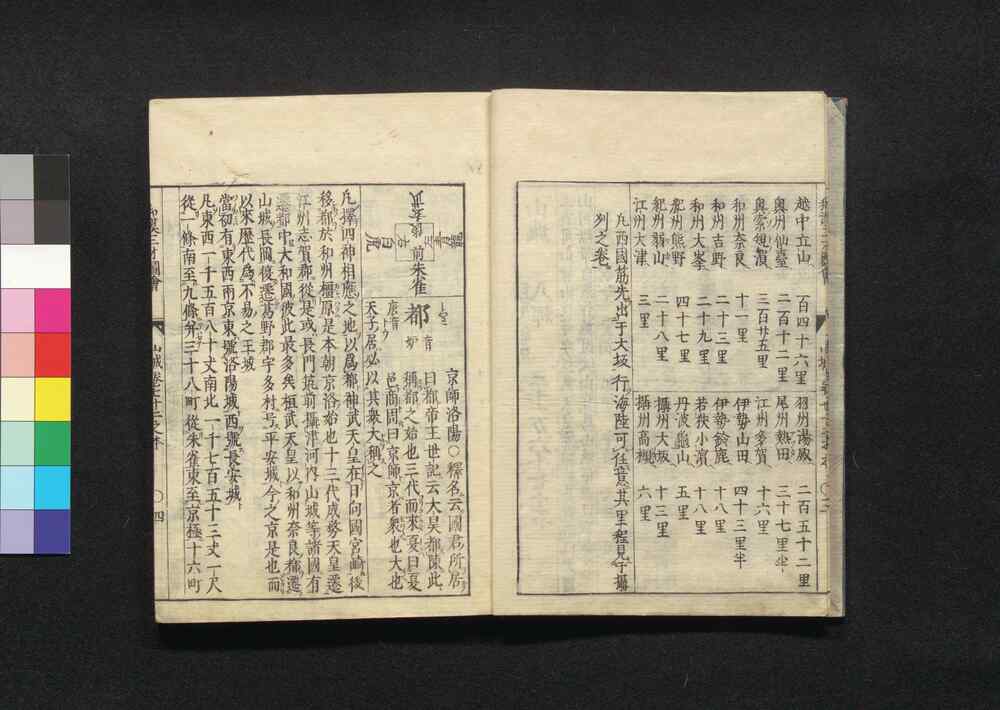 越中立山 百四十六里 羽州湯殿 二百五十二里
奥州仙臺 二百十二里 尾州熱田 三十七里半
三百廿五里 江州多賀 十六里
和州奈良 十一里 伊勢山田 四十三里半
和州吉野 二十三里 伊勢鈴鹿 十八里
和州大峯 二十九里 若狹小濵 十八里
紀州熊野 四十七里 丹波龜山 五里
紀州 二十八里 攝州大坂 十三里
江州大津 三里 攝州高槻 六里
凡西國筋先出于大坂行海陸可任意其里程見于攝
列之卷
都
京師洛陽○釋名云國君所居
曰都帝王世記云大昊都陳此
稱都之始也三代而來夏曰夏
邑商周曰京師京者衆也大也
天子居必以其衆大稱之
前朱雀
凡擇四神相應之地以爲都神武天皇在日向國宮﨑後
移都於和州橿原是本朝京洛始也十三代成務天皇遷
江州志賀郡從是或長門筑前攝津河内山城等諸國有
遷都中大和國彼此最多矣桓武天皇以和州奈良都遷
山城長岡復遷葛野郡宇多村号平安城今之京是也而
以來歷代爲不易之王城
當初有東西兩京東號洛陽城西號長安城
凡東西一千五百八十丈南北一千七百五十三丈一尺
從一條南至九條并三十八町從朱雀東至京極十六町
山城卷七十二之本 ○四